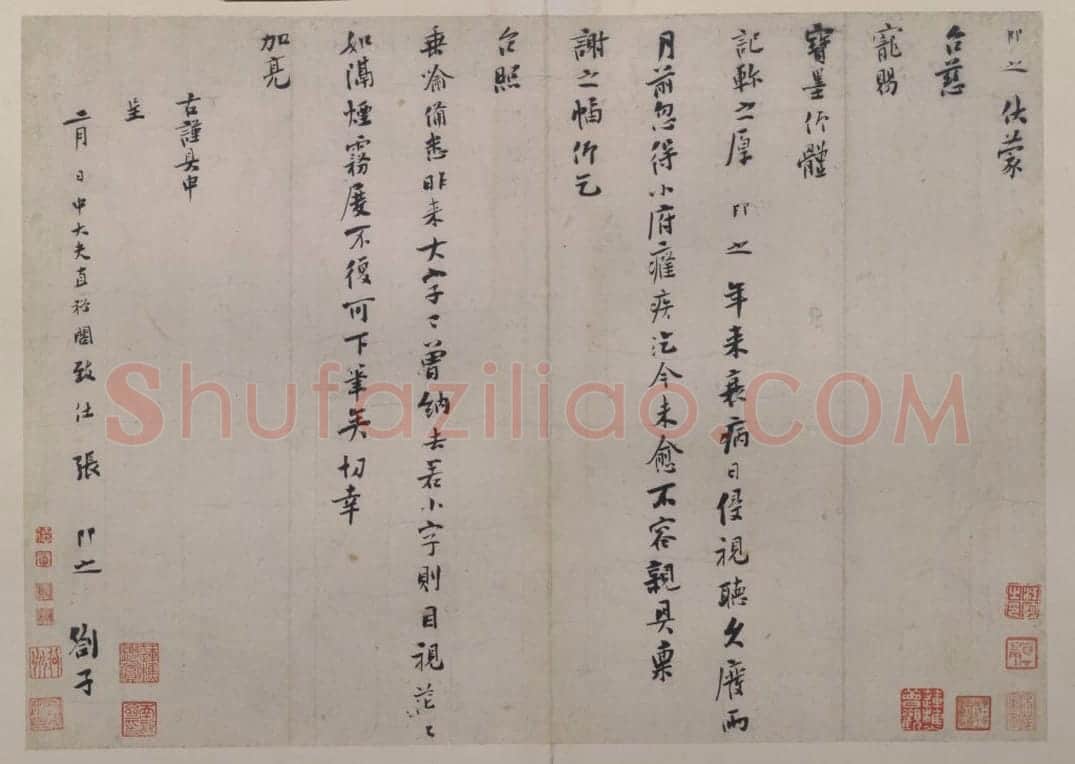 即之 伏蒙
台慈
寵賜
寶墨仰體
記軫之厚 即之 年來衰病日侵視聽久廢兩
月前忽得小府癃疾迄今未愈不容親具稟
謝之幅仰乞
台照
垂喻備悉昨來大字々曾納去若小字則目視茫々
如滿煙霧屢不復可下筆矣切幸
加亮
右謹具申
呈
二月 日中大夫直祕閣致仕張 即之 劄子
Shufaziliao.COM